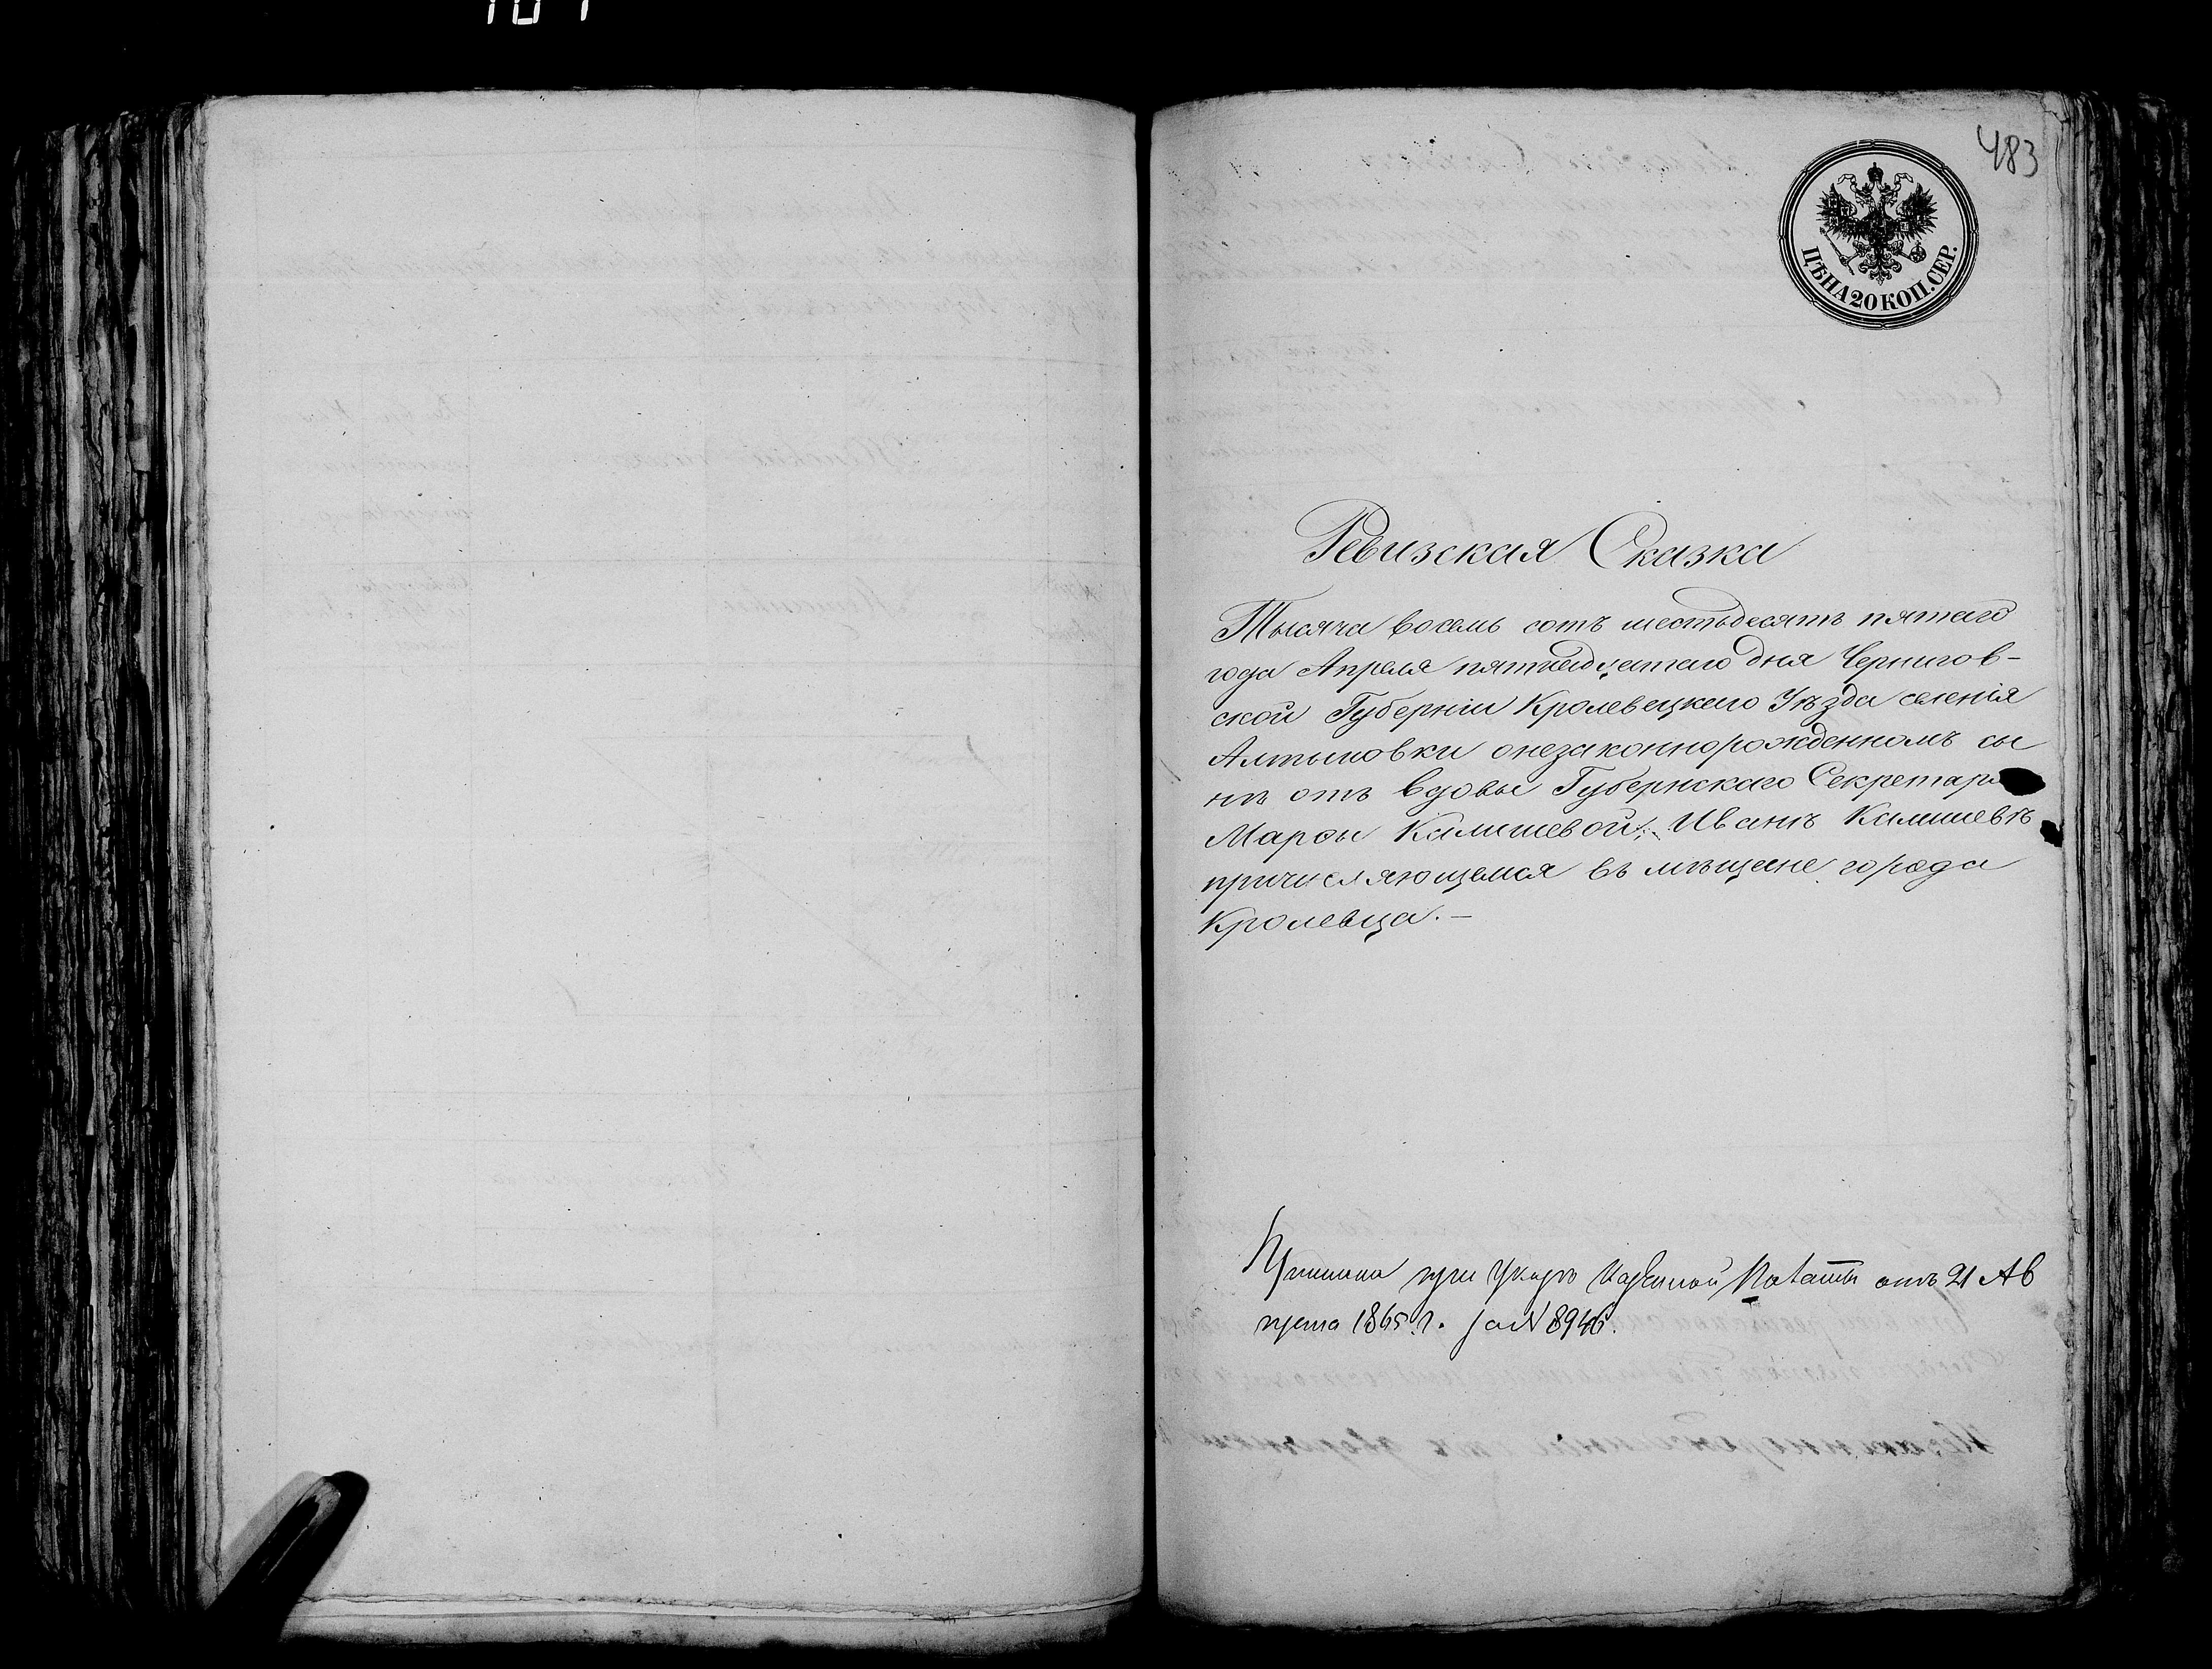 483
ЦѢНА 20 КОП. СЕР.
Ревизская Сказка
Тысяча восемь сотъ шестьдесятъ пятаго
года Апреля пятнадцатаго дня Чернигов-
ской Губерніи Кролевецкаго Уѣзда селенія
Алтыновки онезаконнорожденномъ сы
нѣ отъ вдовы Губернскаго Секретаря
Марфы Калишевой, Иванѣ Калишевѣ
причисляющемся въ мѣщане города
Кролевца. —
при Указѣ Казенной Палаты отъ 21 Ав
густа 1865 г. за N 8946.